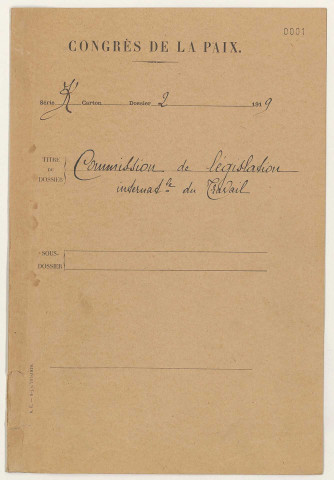 0001
CONGRÈS DE LA PAIX.
Série K Carton Dossier 2 1919
TITRE DU DOSSIER
Commission de législation
internat.le du Travail
SOUS-DOSSIER